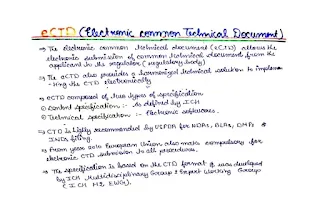 eCTD (Electronic common Technical Document)
→ The electronic common technical document (eCTD) allows the
electronic submission of common technical document from the
applicant to the regulator (regulatory body)
→ The eCTD also provides a harmonized technical solution to impleme-
-nting the CTD electronically
→ eCTD composed of two types of specification
① Content specification :- As defined by ICH
② Technical specification :- Electronic softwares.
→ CTD is highly recommended by USFDA for NDAs, ANDAs, DMFs &
INDs filing.
→ From year 2010 European Union also made compulsory for
electronic CTD submission to all procedures.
→ The specification is based on the CTD format & was developed
by ICH, Multidisciplinary Group 2 Expert Working Group
(ICH M2 EWG).